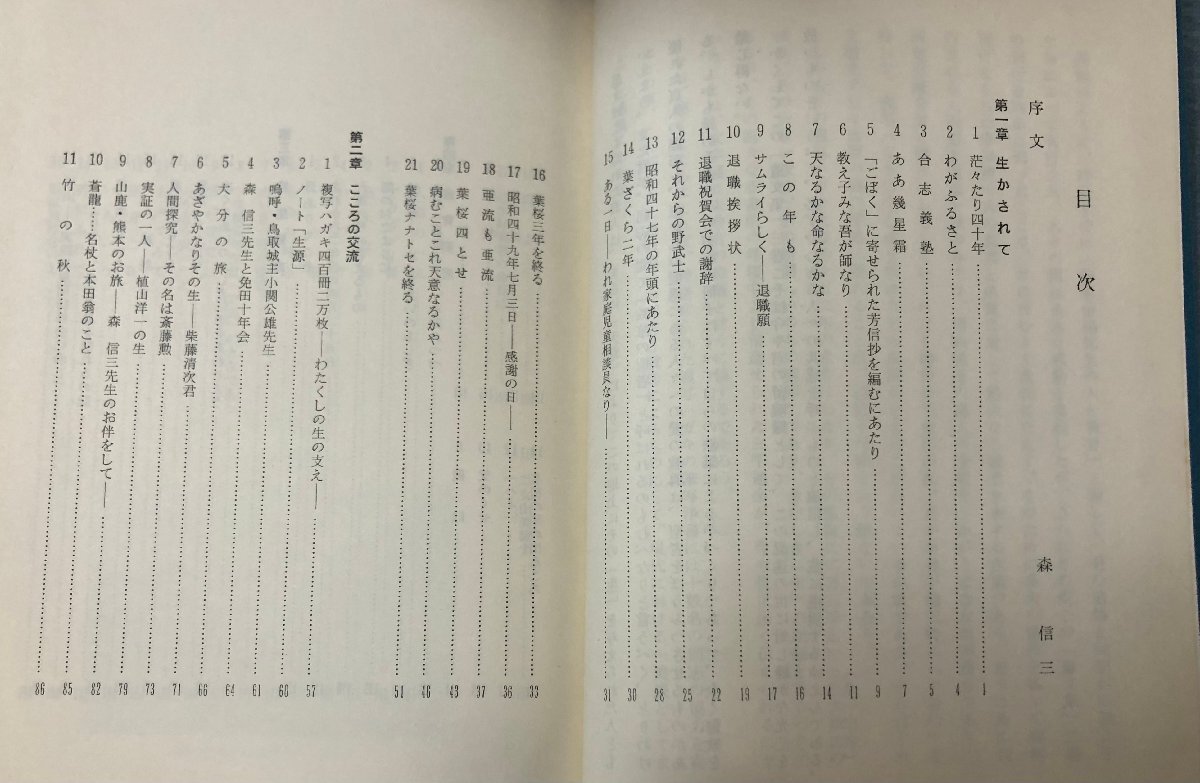 目次
序文 森信三
第一章 生かされて
1 茫々たり四十年 1
2 わがふるさと 4
3 合志義塾 5
4 ああ幾星霜 7
5 「ごぼく」に寄せられた芳信抄を編むにあたり 9
6 教え子みな吾が師なり 11
7 天なるかな命なるかな 14
8 この年も 16
9 サムライらしく——退職願 17
10 退職挨拶状 19
11 退職祝賀会での謝辞 22
12 それからの野武士 25
13 昭和四十七年の年頭にあたり 28
14 葉ざくら二年 30
15 ある一日——われ家庭児童相談員なり—— 31
16 葉桜三年を終る 33
17 昭和四十九年七月三日——感謝の日—— 36
18 亜流も亜流 37
19 葉桜四とせ 43
20 病むことこれ天意なるかや 46
21 葉桜ナナトセを終る 51
第二章 こころの交流
1 複写ハガキ四百冊二万枚——わたくしの生の支え—— 57
2 ノート「生源」 60
3 嗚呼・鳥取城主小関公雄先生 60
4 森信三先生と免田十年会 61
5 大分の旅 64
6 あざやかなりその生——柴藤清次君 66
7 人間探究——その名は斎藤勲 71
8 実証の一人——植山洋一の生 73
9 山鹿・熊本のお旅——森信三先生のお伴をして—— 79
10 蒼龍……名杖と本田翁のこと 82
11 竹の秋 85
86